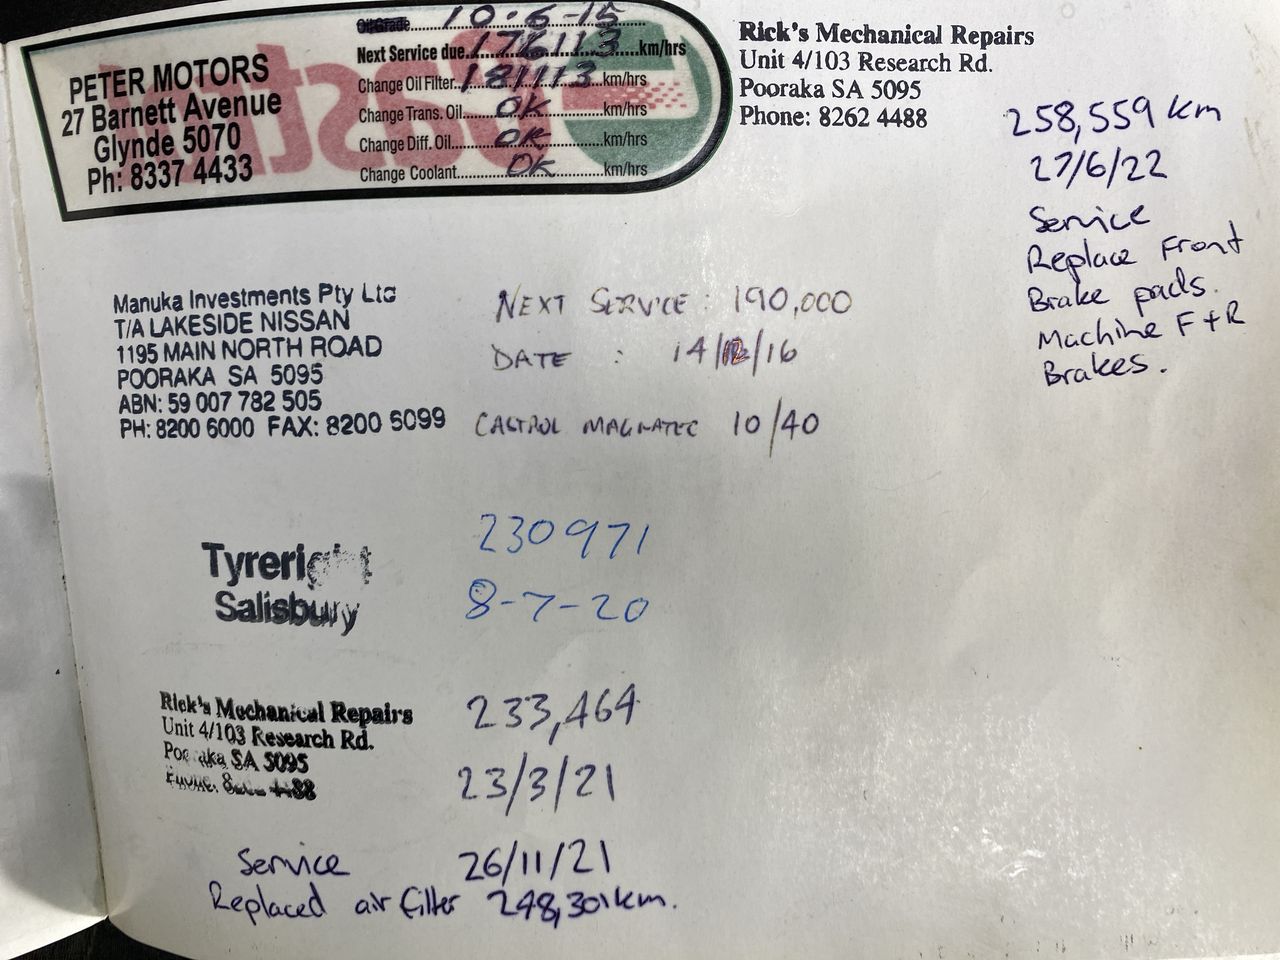 PETER MOTORS
27 Barnett Avenue
Glynde 5070
Ph: 8337 4433
Oil Grade 10-6-15
Next Service due 176113 km/hrs
Change Oil Filter 181113 km/hrs
Change Trans. Oil OK km/hrs
Change Diff. Oil OK km/hrs
Change Coolant OK km/hrs
Rick's Mechanical Repairs
Unit 4/103 Research Rd.
Pooraka SA 5095
Phone: 8262 4488
258,559 km
27/6/22
Service
Replace Front
Brake pads.
Machine F+R
Brakes.
Manuka Investments Pty Ltd
T/A LAKESIDE NISSAN
1195 MAIN NORTH ROAD
POORAKA SA 5095
ABN: 59 007 782 505
PH: 8200 6000 FAX: 8200 5099
NEXT SERVICE : 190,000
DATE : 14/12/16
CASTROL MAGNATEC 10/40
Tyreright
Salisbury
230971
8-7-20
Rick's Mechanical Repairs
Unit 4/103 Research Rd.
Pooraka SA 5095
Phone: 4488
233,464
23/3/21
Service 26/11/21
Replaced air filter 248,301km.